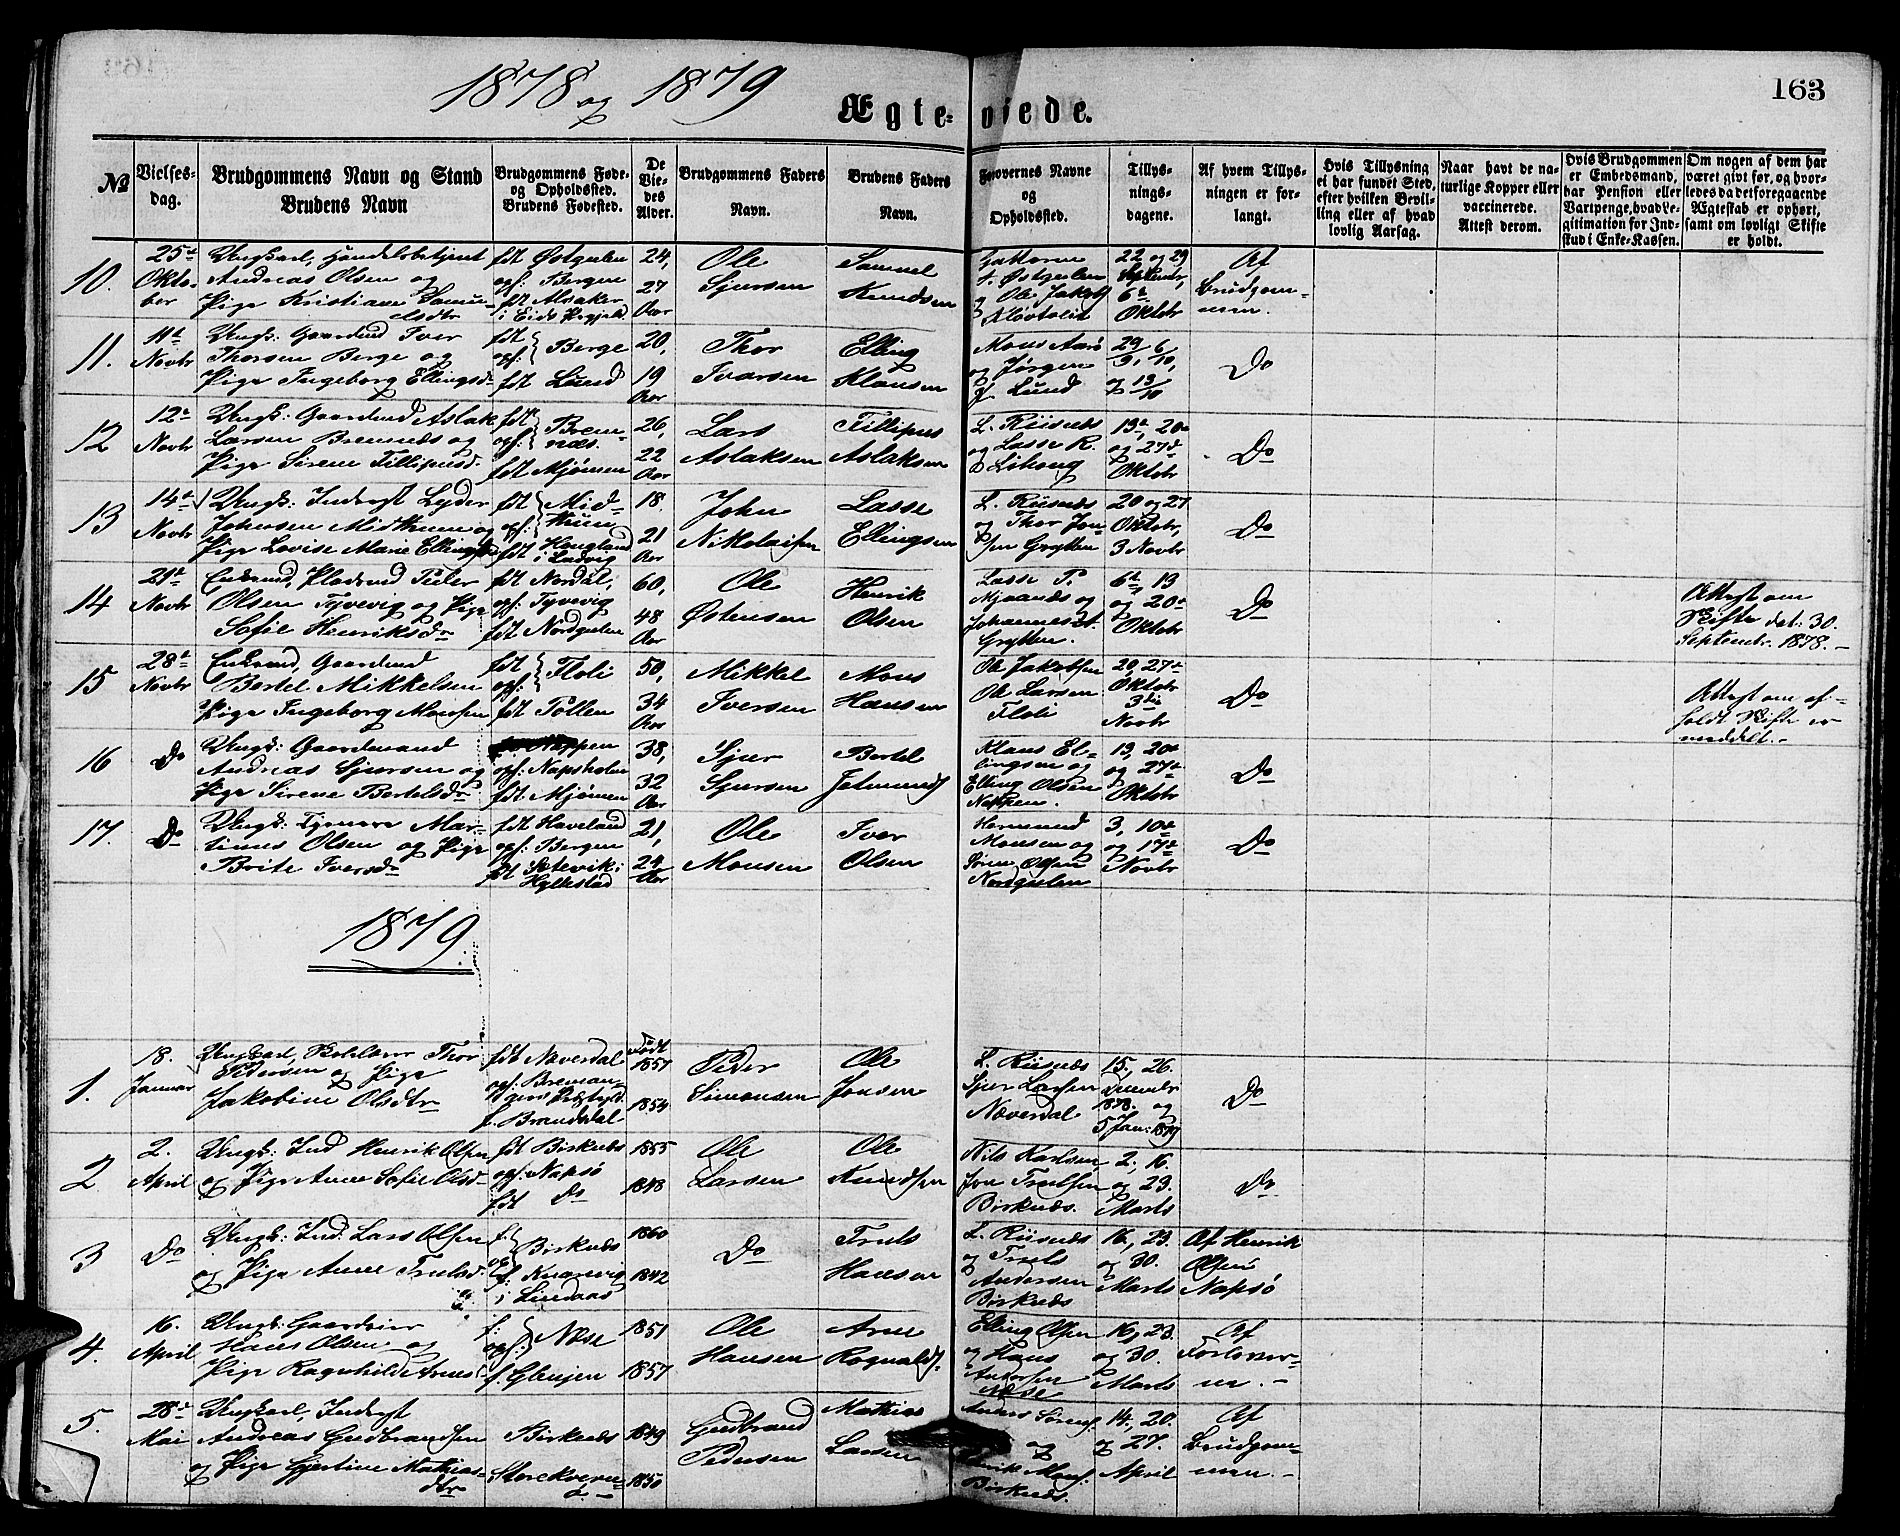 1878 og 1879
163
Ægteviede.
№
Vielsesdag.
Brudgommens Navn og Stand
Brudens Navn
Brudgommens Føde- og Opholdssted.
Brudens Fødested.
De Viedes Alder.
Brudgommens Faders Navn.
Brudens Faders Navn.
Forlovernes Navne og Opholdssted.
Tillysningsdagene.
Af hvem Tillysningen er forlangt.
Hvis Tillysning ei har fundet Sted, efter hvilken Bevilling eller af hvad lovlig Aarsag.
Naar havt de naturlige Kopper eller vaccinerede. Attest derom.
Hvis Brudgommen er Embedsmand, har Pension eller Vartpenge, hvad Legitimation for Indskud i Enke-Kassen.
Om nogen af dem har været givt før, og hvorledes da det foregaaende Ægteskab er ophørt, samt om lovligt Skifte er holdt.
10. 25de Oktober
Ungkarl, Handelsbetjent Andreas Olsen og Pige Kristiane Samuelsdtr
fdt Østgulen opf: Bergen fdt Alsaker i Eids Prgjeld
24, 27 Aar
Ole Sjursen
Samuel Knudsen
Østgulen og Ole Jakobs Kløvtveit
22 og 29 Septembr, 6te Oktobr
Af Brudgommen.
11. 11te Novbr
Ungk: Gaardmd Iver Thorsen Berge og Pige Ingeborg Ellingsd.
fdt opf: Berge fdt Lund
20, 19 Aar
Thor Ivarsen
Elling Klausen
Mons Aarø og Jørgen J. Lund
29/9, 6/10, og 13/10
Do
12 12te Novbr
Ungk: Gaardmd Aslak Larsen Bremnæs og Pige Sirene Fillipusd.
fdt opf: Bremnæs. fdt Mjømen
26, 22 Aar
Lars Aslaksen
Fillipus Aslaksen
L. Riisnæs og Lasse R.
13de, 20de og 27de Oktobr
Do
13 14de Novbr
Ungk: Inderst Lyder Johnsen Midthun og Pige Lovise Marie Ellingsd
fdt opf: Midthun fdt Haugland i Ladvig
18. 21 Aar
John Nikolaisen
Lasse Ellingsen
L. Riisnæs og Thor Jonsen Grytten
20 og 27 Oktobr, 3 Novbr
Do
14 21de Novbr
Enkemd, Pladsmd Peder Olsen Tyvevig og Pige Sofie Henriksdr
fdt Nordal, opf: Tyvevig fdt Nordgulen
60, 48 Aar
Ole Østensen
Henrik Olsen
Lasse P. Mjanæs og Johannes A. Grytten.
6te, 13 og 20de Oktobr
Do
Attest om Skifte dat: 30. Septembr. 1878. –
15 28de Novbr
Enkemd, Gaardmd Bertel Mikkelsen Pige Ingeborg Monsen
fdt opf: Floli fdt Tollen
50, 34 Aar
Mikkel Iversen
Mons Hansen
Ole Jakobsen Ole Larsen Floli
20, 27de Oktobr 3die Novbr
Do
Attest om afholdt Skifte er meddelt. –
16 Do
Ungk: Gaardmand Andreas Sjursen og Pige Sirene Bertelsdr.
Nappen opf: Napsholm fdt. Mjømen
38, 32 Aar
Sjur Sjursen
Bertel
Klaus Ellingsen og Elling Olsen Nappen.
13, 20de og 27de Oktobr
Do
17. Do
Ungk: Tjener Martinus Olsen og Pige Brite Iversdr
fdt Haveland opf: Bergen fdt Setevik i Hyllestad
21, 24 Aar
Ole Monsen
Iver Olsen
Hermund Monsen og Søren Olsen Nordgulen
3, 10de og 17de Novbr
Do
1879.
1. 18. Januar
Ungkarl, Thor Pedersen og Pige Jakobine Olsdtr
fdt Næverdal f. Brandsdal
Født 1857 1854
Peder Simonsen
Ole Jonsen
L. Riisnæs Sjur Larsen Næverdal
15. 26. Decembr 1878. og 5 Jan: 1879
Do
2 2. April
Ungk: Ind Henrik Olsen og Pige Anne Sofie Olsd.
fdt Birknæs opf: Napsø fdt Do
1855 1848
Ole Larsen
Ole Knudsen
Nils Karlsen, Jon Trulsen Birknæs.
2, 16. og 23. Marts
Do
3 Do
Ungk: Ind. Lars Olsen og Pige Anne Trulsd.
f: og Birknæs f: Knarvig i Lindaas
1860 1842
Do
Truls Hansen
L. Riisnæs og Truls Andersen Birknæs
16, 23. og 30. Marts
Af Henrik Olsen Napsø
4. 16. April
Ungk: Gaardeier Hans Olsen og Pige Ragnhilde Arnes
f: opf: Næse f. Glenjen
1851 1857
Ole Hansen
Arne Rognalds.
Elling Olsen og Hans Andersen Næse
16, 23. og 30. Marts
Af Forloveren. –
5. 28de Mai
Ungkarl, Inderst Andreas Gudbrandsen og Pige Gjertine Mathiasdtr
Birknæs
1849 1850
Gudbrand Pedersen
Mathias Larsen
Anders Søren og Birknæs.
14., 20. og 27. April
Af Brudgommen. –